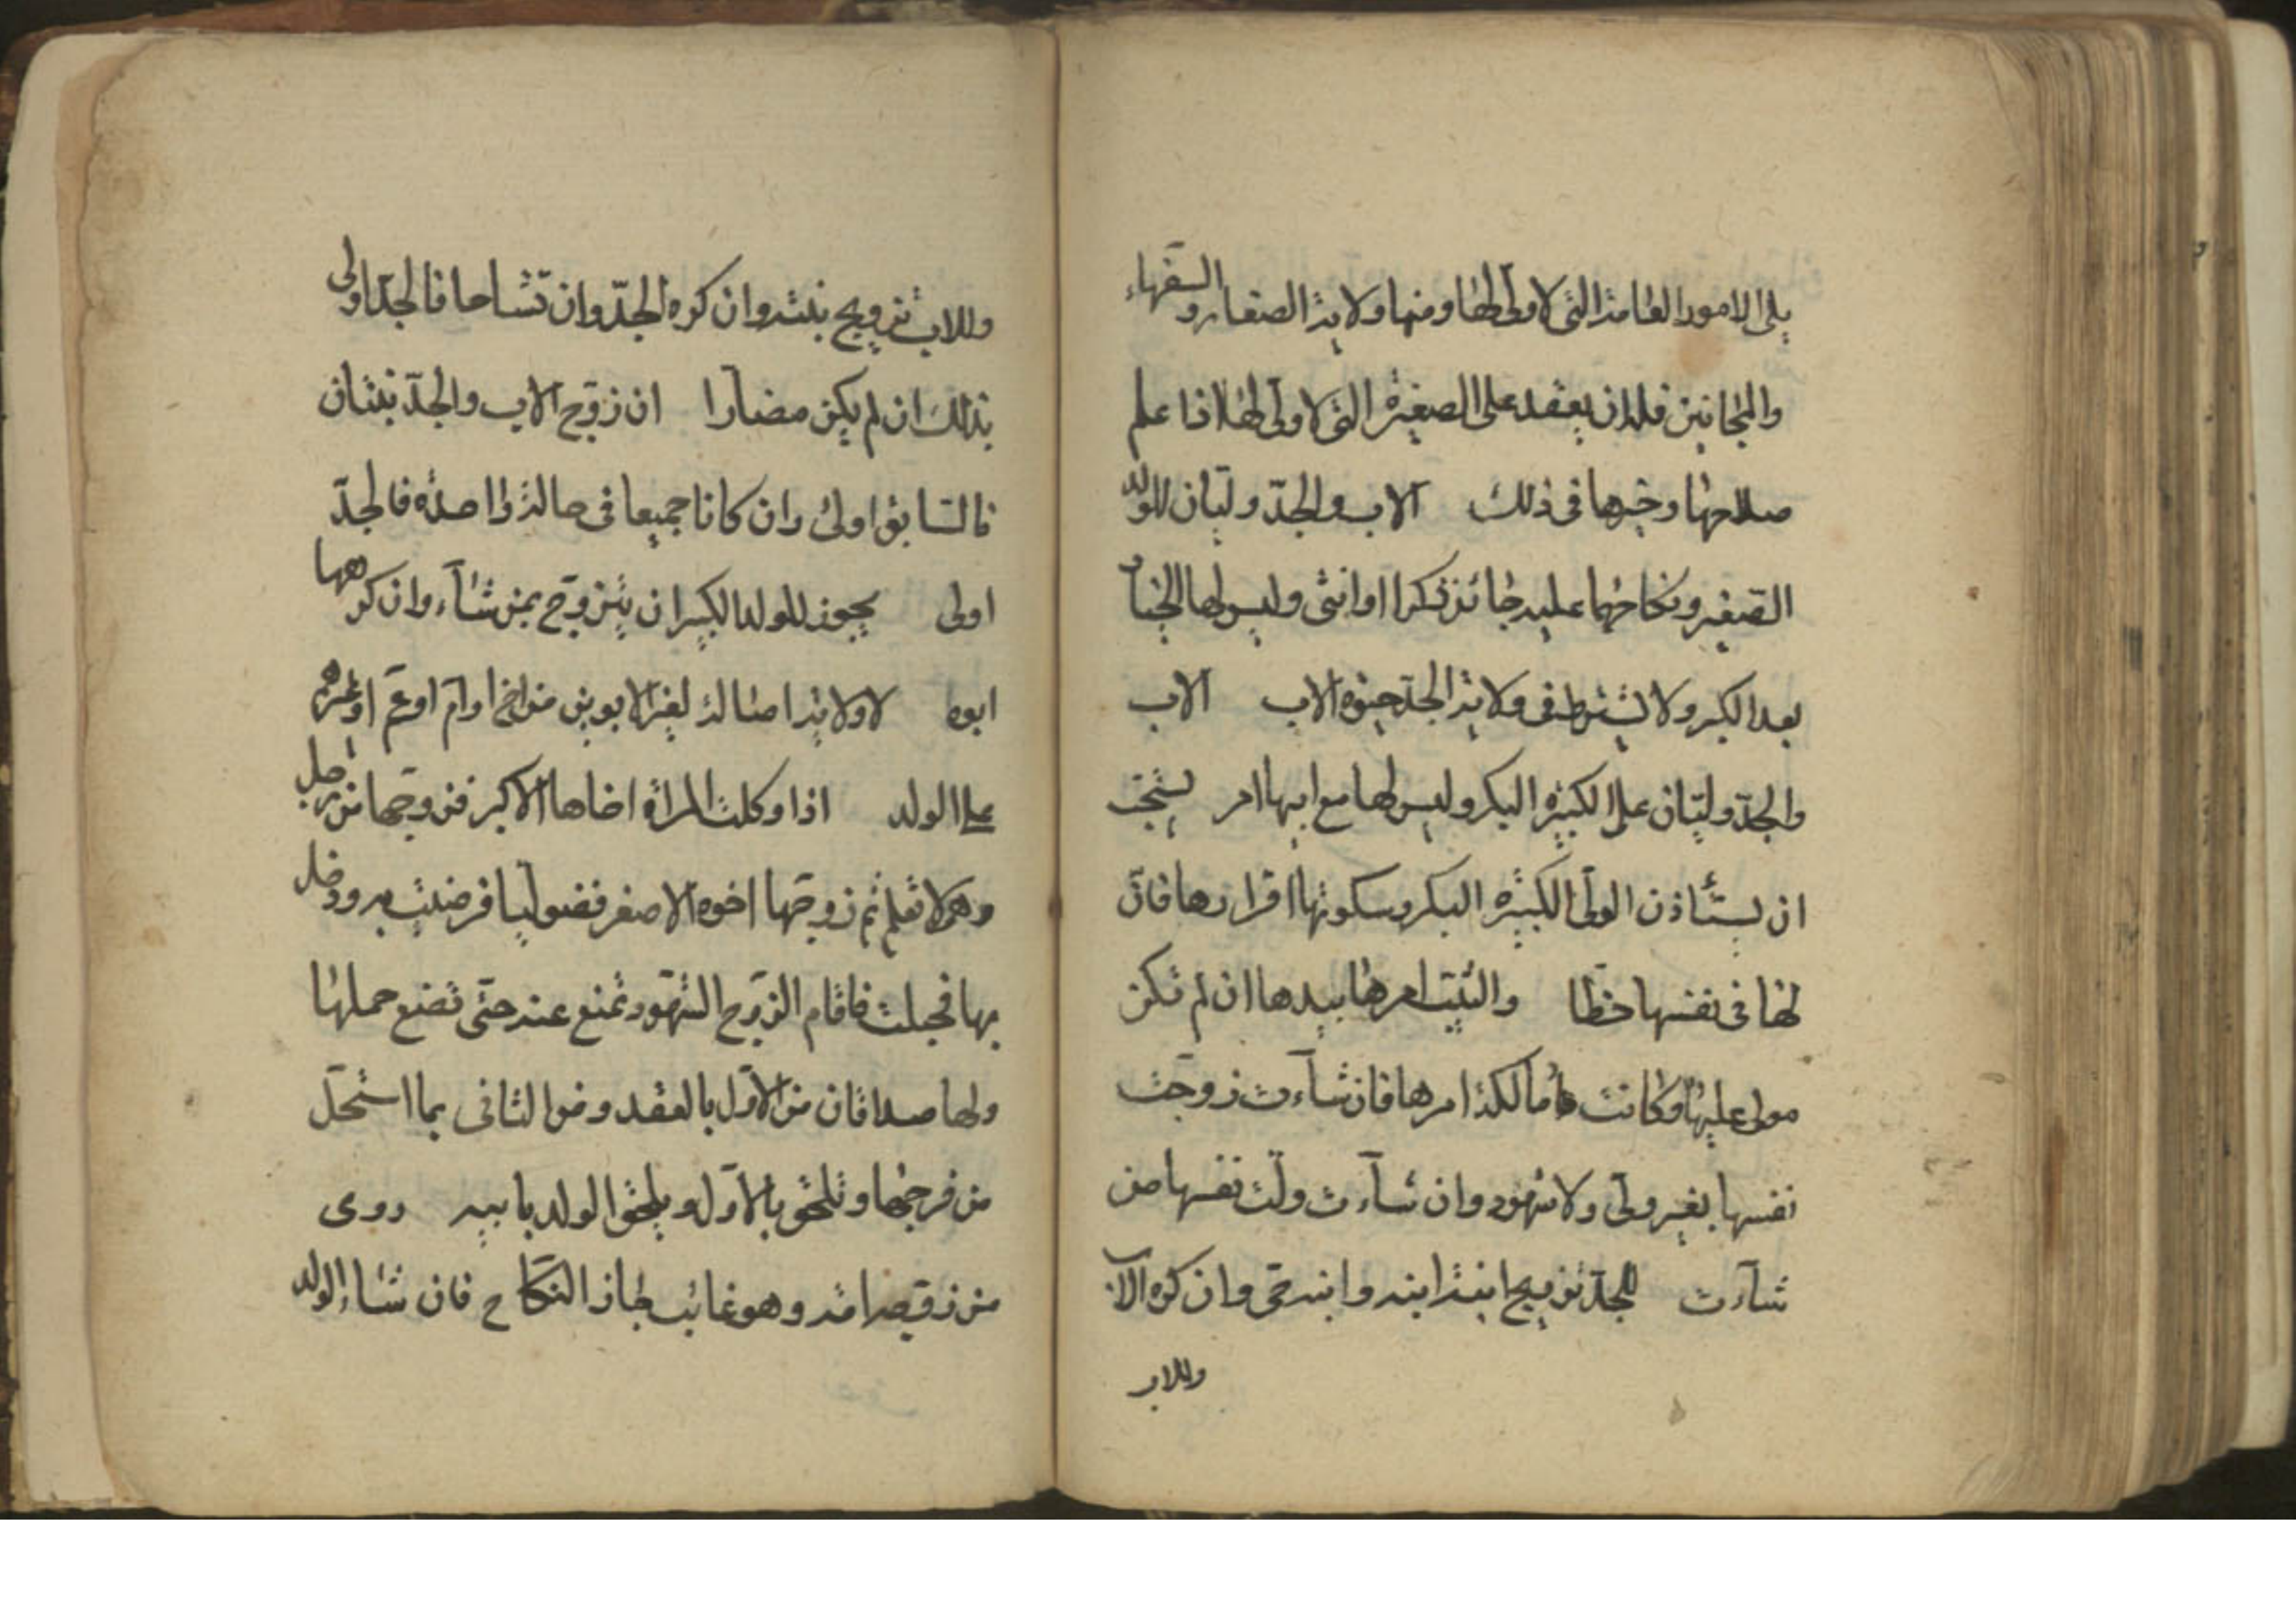 يلى الامور العامة التى لا ولى لها ومنها ولاية الصغار والسفهاء
والمجانين فله ان يعقد على الصغيرة التى لا ولى لها اذا علم
صلاحها وخيرها فى ذلك الاب والجدّ وليّان للولد
الصغير ونكاحهما عليه جائز ذكرا او انثى وليس لها الخيار
بعد الكبر ولا يشترط فى ولاية الجدّ حيوة الاب الاب
والجدّ وليّان على الكبيرة البكر وليس لها مع ابيها امر يستحب
ان يستأذن الولىّ الكبيرة البكر وسكوتها اقرارها فانّ
لها فى نفسها حظّا والثيّب امرها بيدها ان لم تكن
مولى عليها وكانت مالكة امرها فان شآءت زوجت
نفسها بغير ولىّ ولا شهود وان شآءت ولّت نفسها من
شآءت للجدّ تزويج ابنة ابنه وابنه حىّ وان كره الاب
وللاب
وللاب تزويج بنته وان كره الجدّ وان تشاحا فالجدّ اولى
بذلك ان لم يكن مضارّا ان زوّج الاب والجدّ بنتان
فالسّابق اولى وان كانا جميعا فى حالة واحدة فالجدّ
اولى يجوز للولد الكبير ان يتزوّج بمن شآء وان كرهها
ابوه لا ولاية اصالة لغير الابوين من اخ او امّ او عمّ او غيرهم
على الولد اذا وكلت المرأة اخاها الاكبر فزوجّها من رجل
وهى لا تعلم ثم زوجّها اخوه الاصغر فضوليّا فرضيت به ودخل
بها فحبلت فاقام الزوّج الشهود تمنع عنه حتّى تضع حملها
ولها صداقان من الاوّل بالعقد ومن الثانى بما استحلّ
من فرجها وتلحق بالاوّل ويلحق الولد بابيه روى
من زوّجه امّه وهو غائب جاز النكاح فان شاء الولد